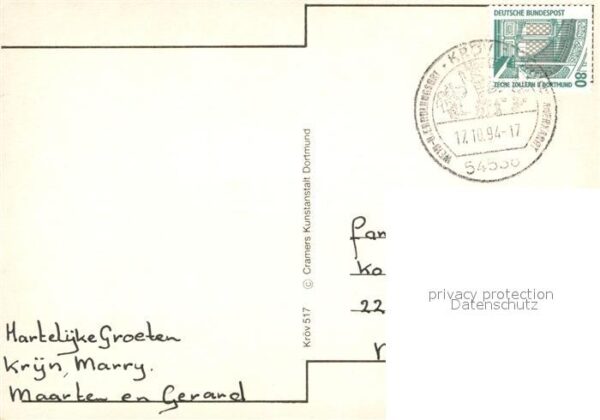 DEUTSCHE BUNDESPOST
80
ZECHE ZOLLERN II DORTMUND
KRÖV
12.10.94-17
54536
Kröv 517 © Cramers Kunstanstalt Dortmund
fam
Ka
22
privacy protection
Datenschutz
Hartelijke Groeten
Krijn, Marry.
Maarten en Gerard